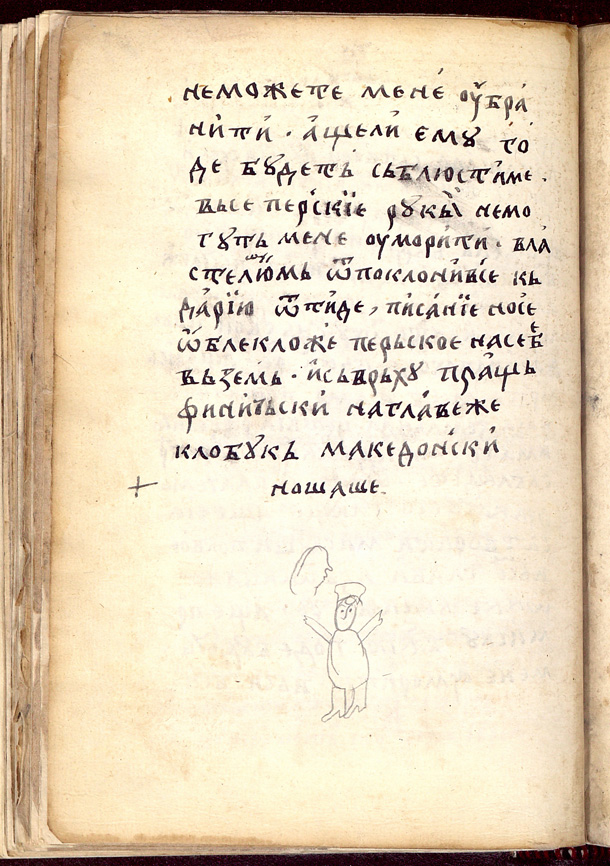 неможете мене́ ѹ҆бра́
ни́ти́ · а҆щели́ ему то́
де бꙋ́деть съблюсти́ме ·
въсе пе́рскїе рꙋкы̀ немо
гꙋть мене ѹмори́ти · вла
стелю́мь ѿпоклони́вше къ
да́рїю ѿи́де, писа́нїе носе
ѡ҆́блекложе перьское насеѣ
въземь · и҆съврьхꙋ пла́щь
фини́чьски́ нагла́веже
клобꙋкь македо́нски́
+ ношаше.